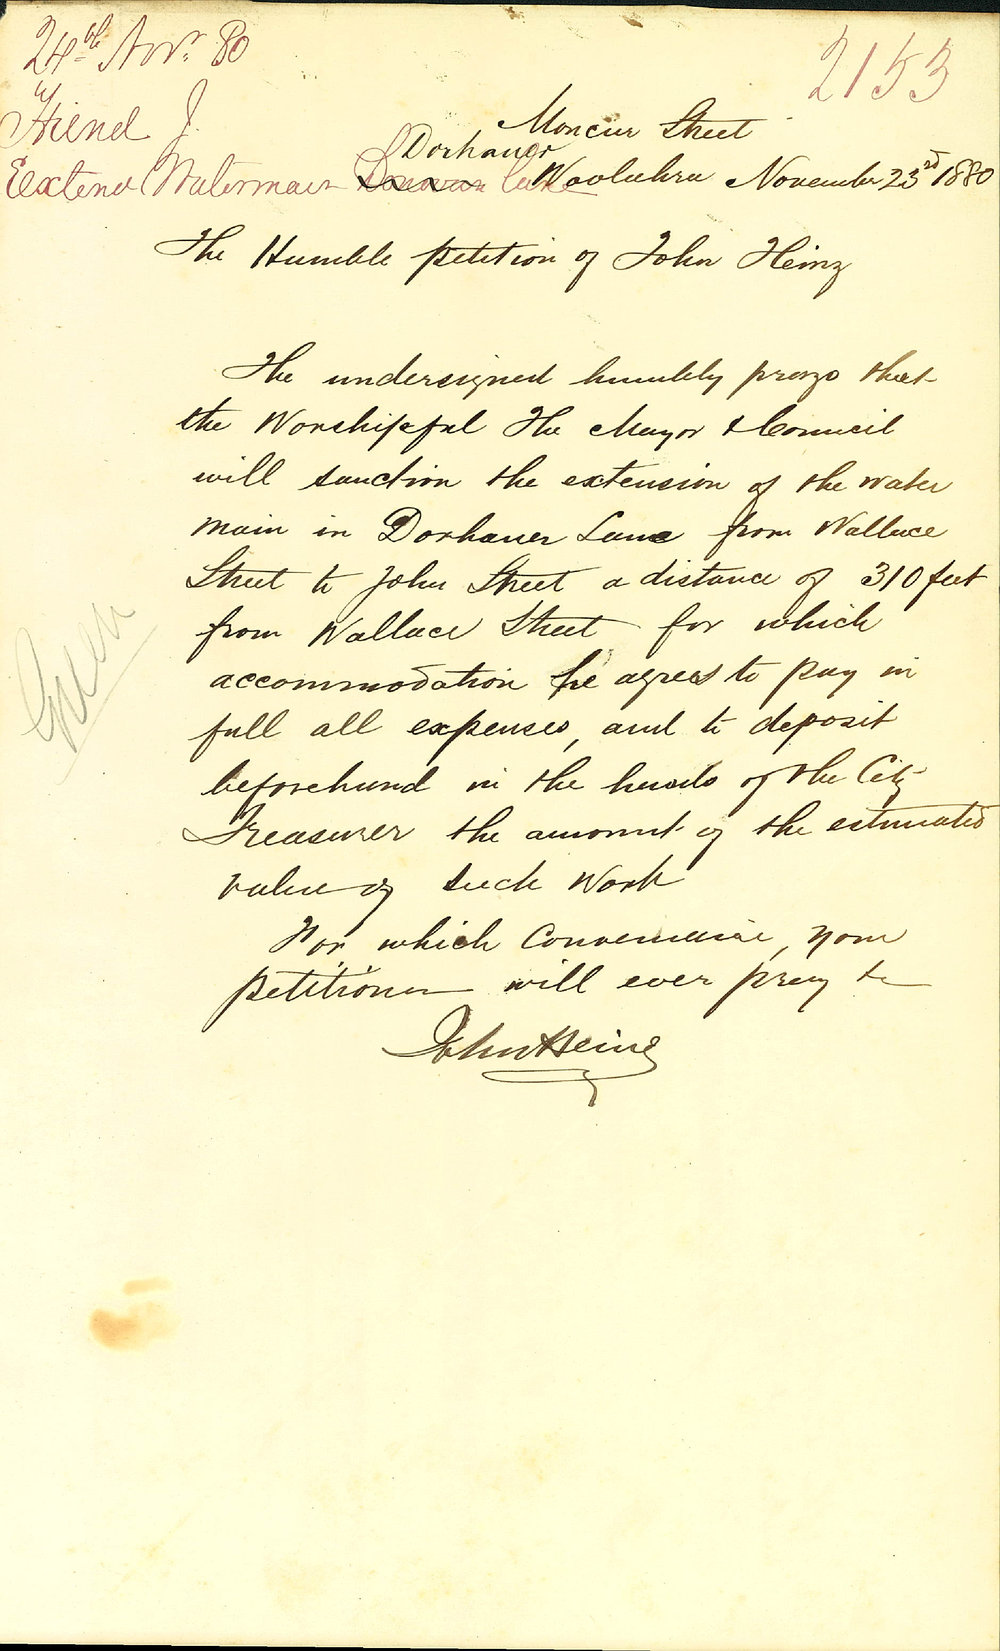 24th Novr. 80
2153
J.
Moncur Street
Dorhauer
Extend Watermain Lane
Woolahra November 23rd 1880
The Humble petition of John Heinz
The undersigned humbly prays that
the Worshipful The Mayor & Council
will sanction the extension of the water
main in Dorhauer Lane from Wallace
Street to John Street a distance of 310 feet
from Wallace Street for which
accommodation he agrees to pay in
full all expenses, and to deposit
beforehand in the hands of the City
Treasurer the amount of the estimated
value of such Work
For which Convenience, your
petitioner will ever pray &c
John Heinz